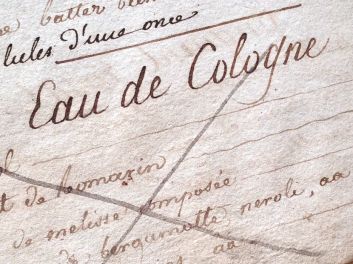 batter
d'une once
Eau de Cologne
de Romazin
de melisse composée
de bergamotte neroli, aa
aa